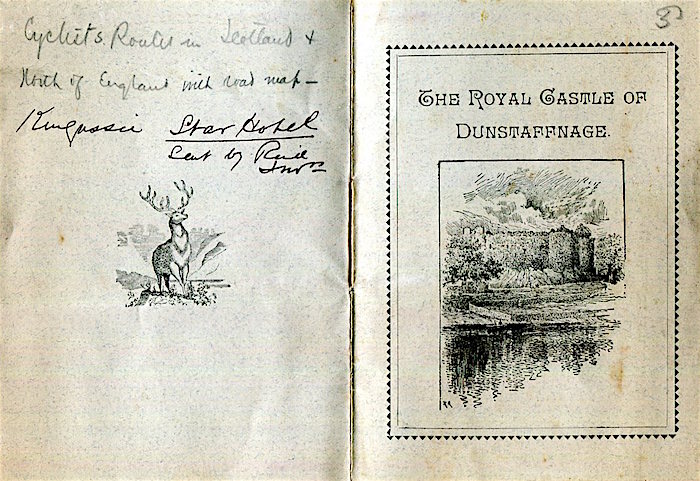 Cyclists Routes in Scotland &
North of England with road map –
Kingussie Star Hotel
Sent by Reid
3
THE ROYAL CASTLE OF
DUNSTAFFNAGE.